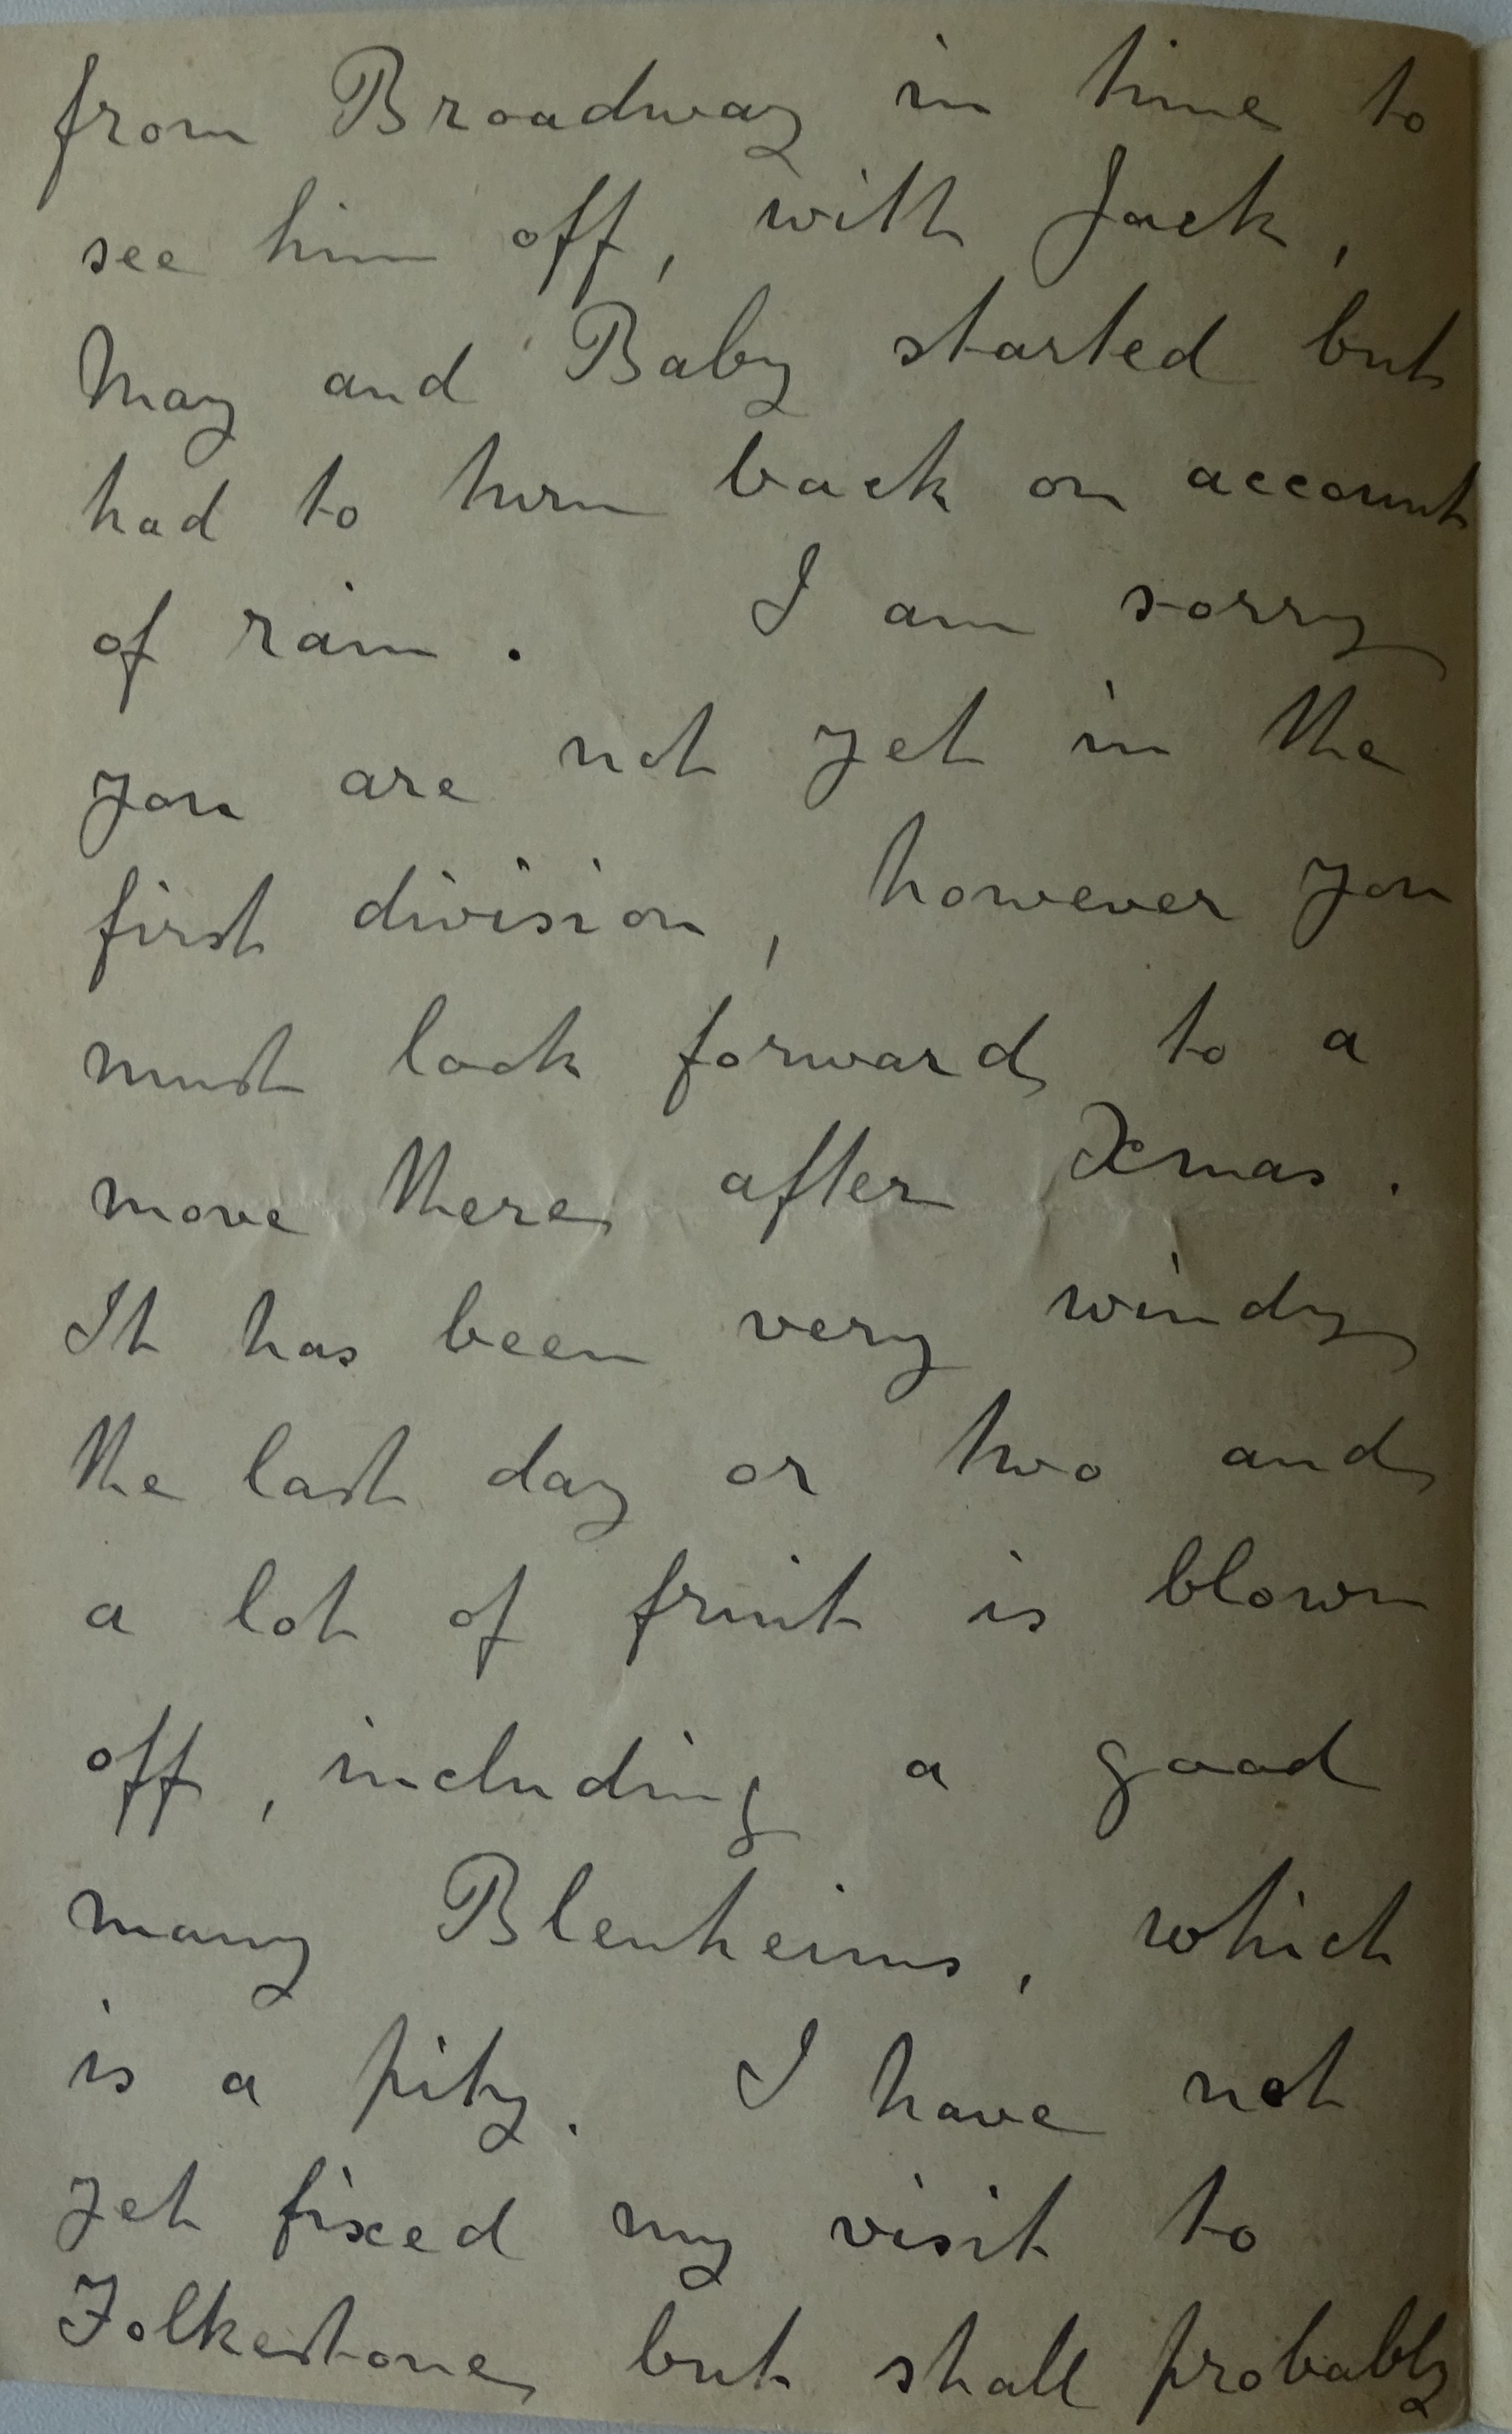 from Broadway in time to
see him off, with Jack,
May and Baby started but
had to turn back on account
of rain. I am sorry
you are not yet in the
first division, however you
must look forward to a
move there after Xmas.
It has been very windy
the last day or two and
a lot of fruit is blown
off, including a good
many Blenheims, which
is a pity. I have not
yet fixed my visit to
Folkestone but shall probably